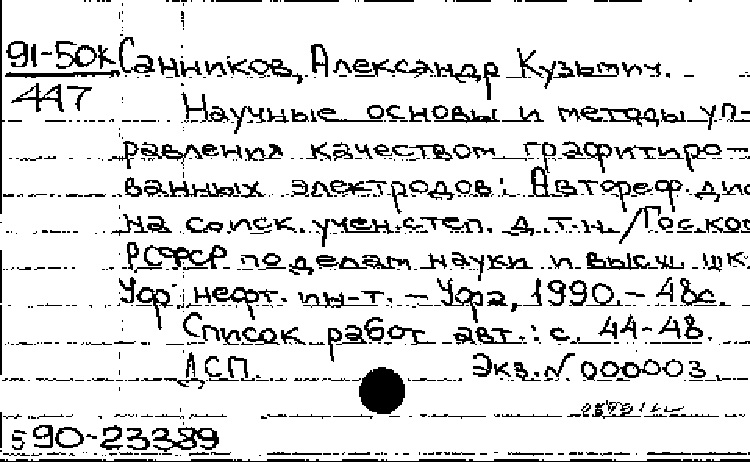 91-50к Санников, Александр Кузьмич.
447
Научные основы и методы уп-
равления качеством графитиро-
ванных электродов: Автореф. дис
на соиск. учен. степ. д.т.н./Гос. ком
РСФСР по делам науки и высш. шк.
Уфр. нефт. ин-т. - Уфа, 1990. - 48с.
Список работ авт.: с. 44-48.
ДСП. Экз. № 000003.
590-23389